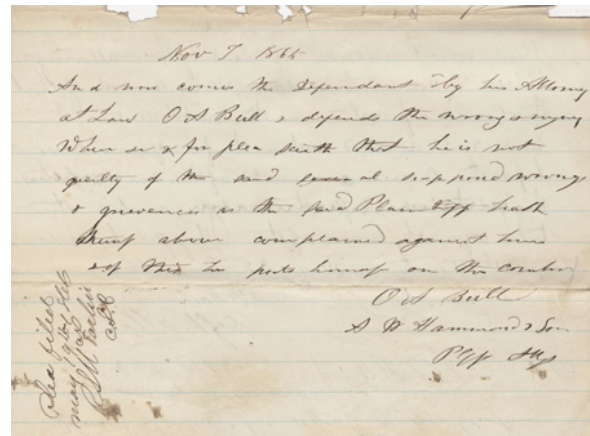 Nov 7 1865
And now comes the Defendant by his Attorney
at Law O A Bull & defends the wrong & injury
When &c & for plea saith that he is not
guilty of the said several supposed wrongs
& grievences as the said Plaintiff hath
thereof above complained against him
& of this he puts himself on the country
O A Bull
A W Hammond & Son
Plff Attys
Plea filed
May